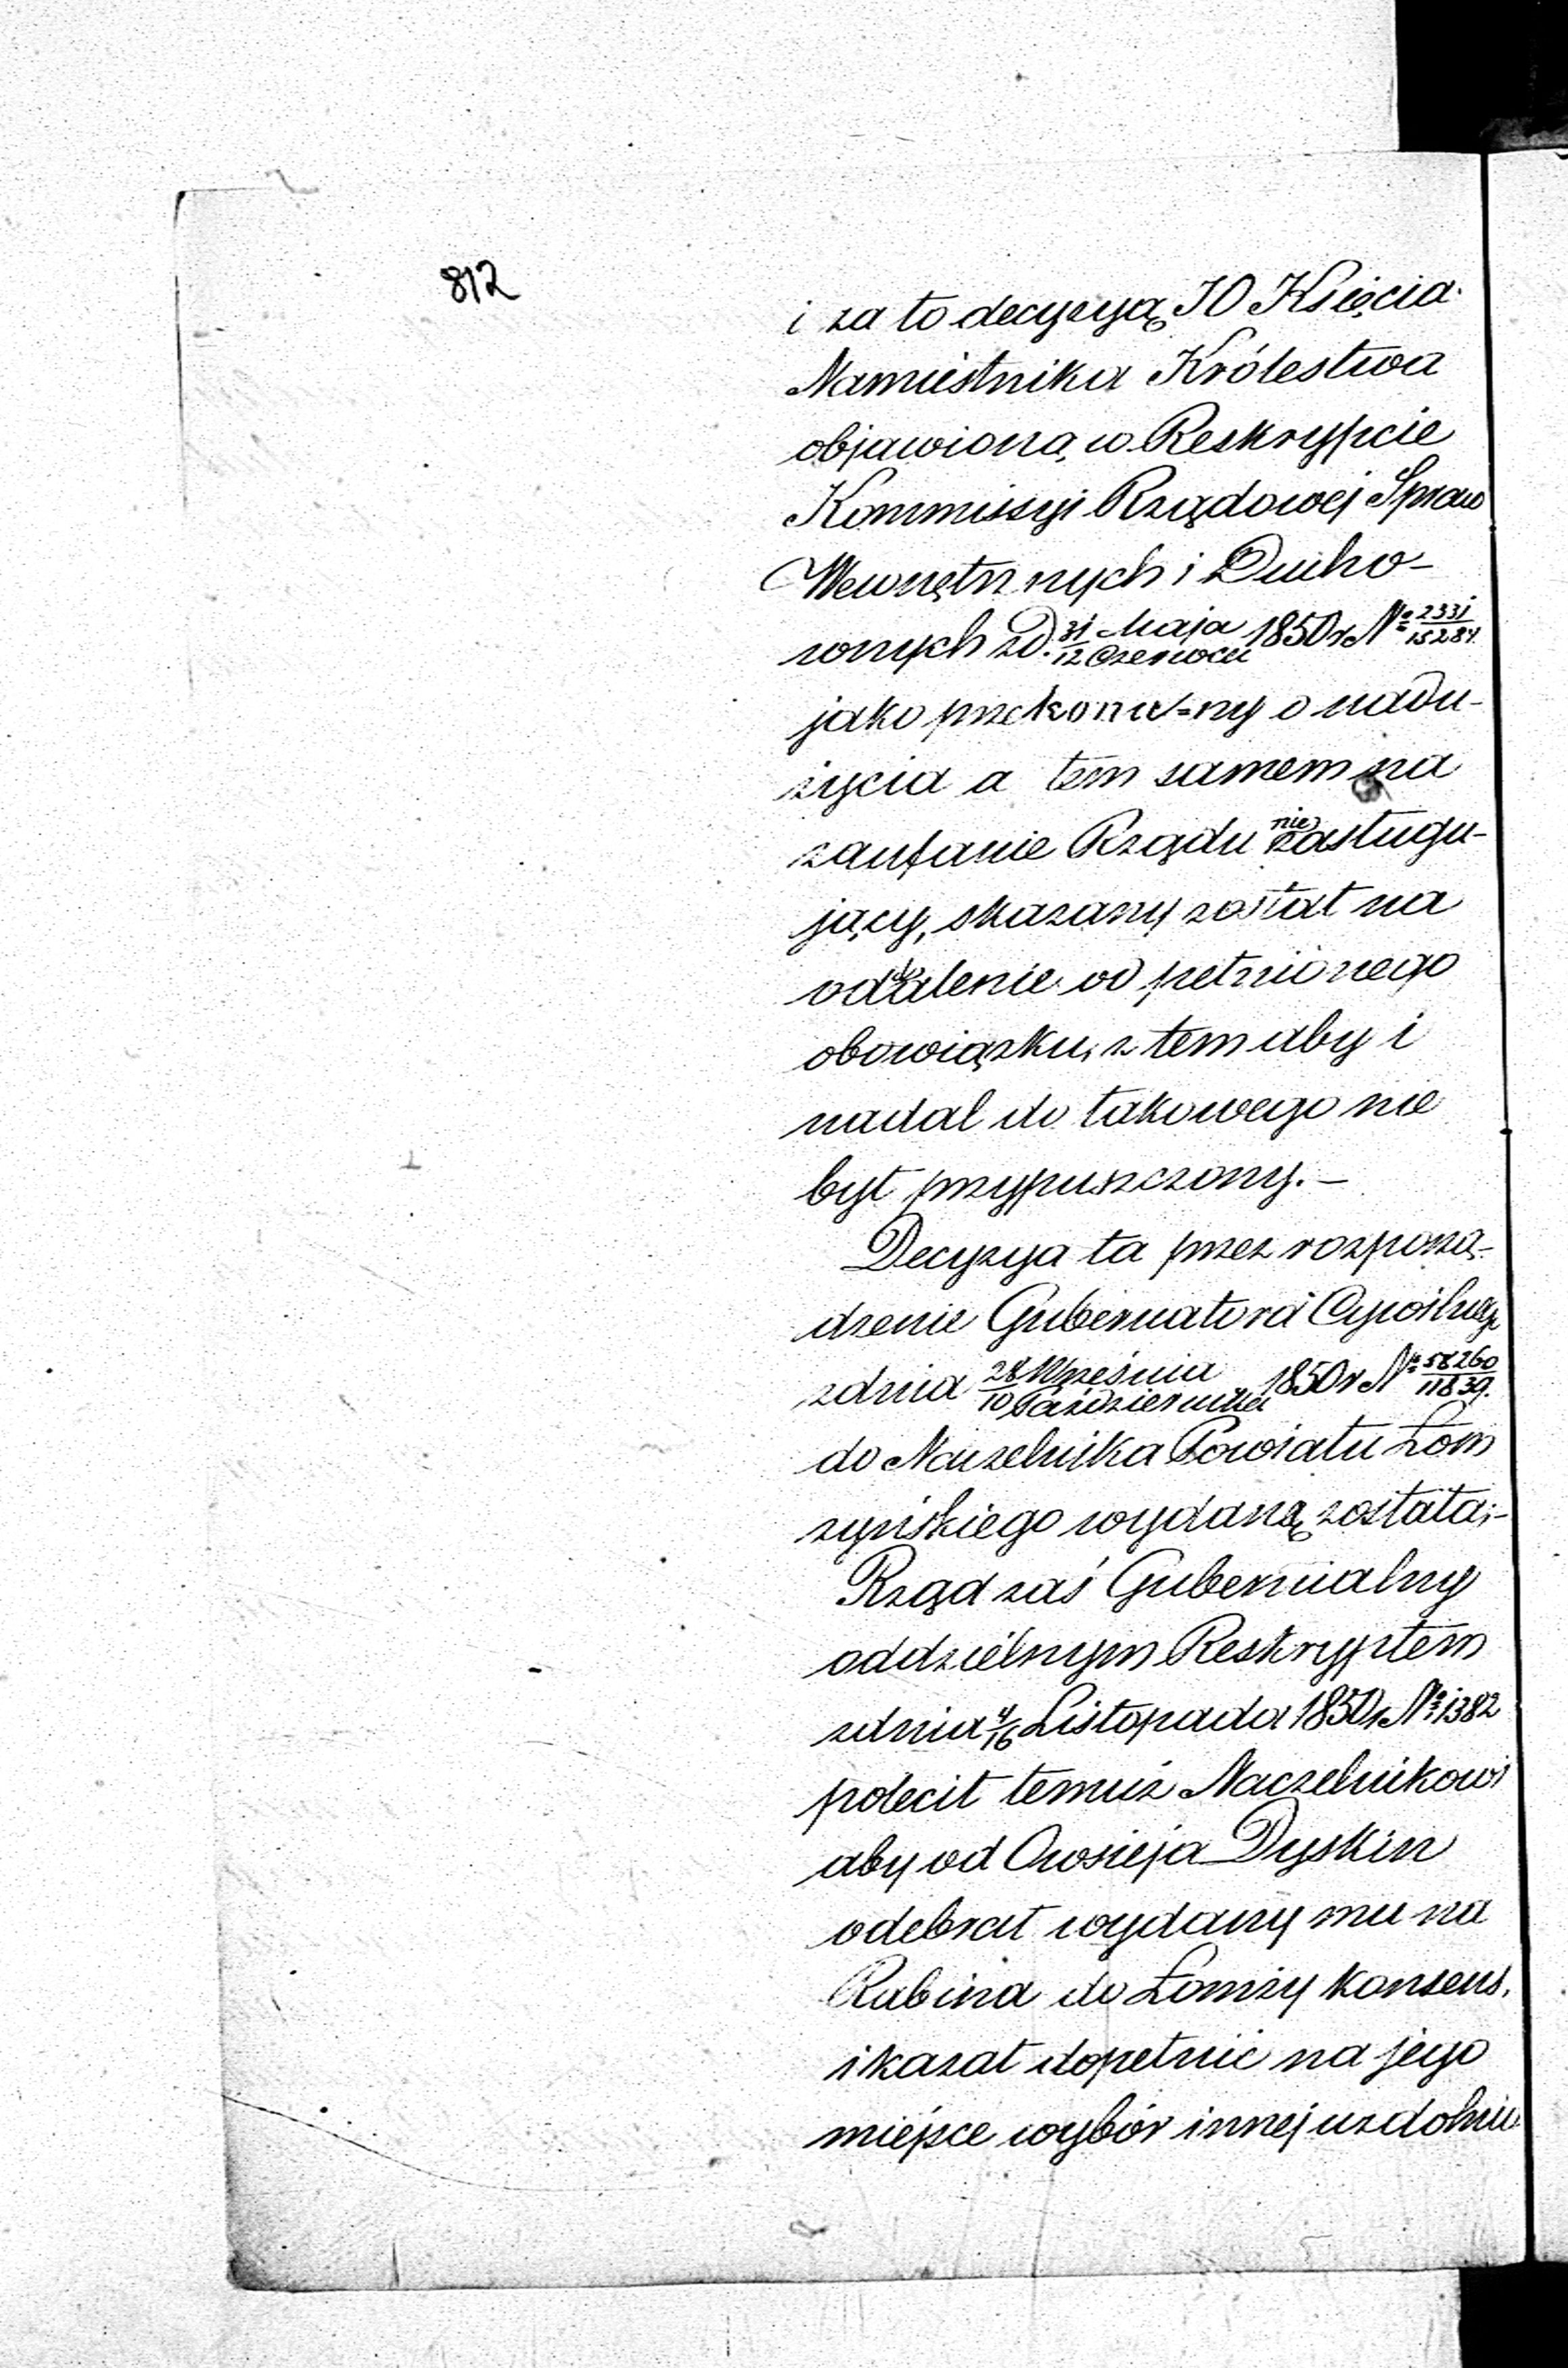 812
i za to decyzyą JO Księcia
Namiestnika Królestwa
objawioną w Reskrypcie
Kommissyi Rządowej Spraw
Wewnętrznych i Ducho-
wnych z d. 31 Maja / 12 Czerwca 1850 r. № 2331 / 15284.
jako przekonany o nadu-
życia a tem samem na
zaufanie Rządu nie zasługu-
jący, skazany został na
oddalenie od pełnionego
obowiązku, z tem aby i
nadal do takowego nie
był przypuszczony. –
Decyzya ta przez rozporzą-
dzenie Gubernatora Cywilnego
z dnia 28 Września / 10 Października 1850 r № 58260 / 11839.
do Naczelnika Powiatu Łom
zyńskiego wydaną została; –
Rząd zaś Gubernialny
oddzielnym Reskryptem
z dnia 4/16 Listopada 1850 r. № 1382
polecił temuż Naczelnikowi
aby od Owsieja Dyskin
odebrał wydany mu na
Rabina do Łomży konsens,
i kazał dopełnić na jego
miejsce wybór innej uzdolnio